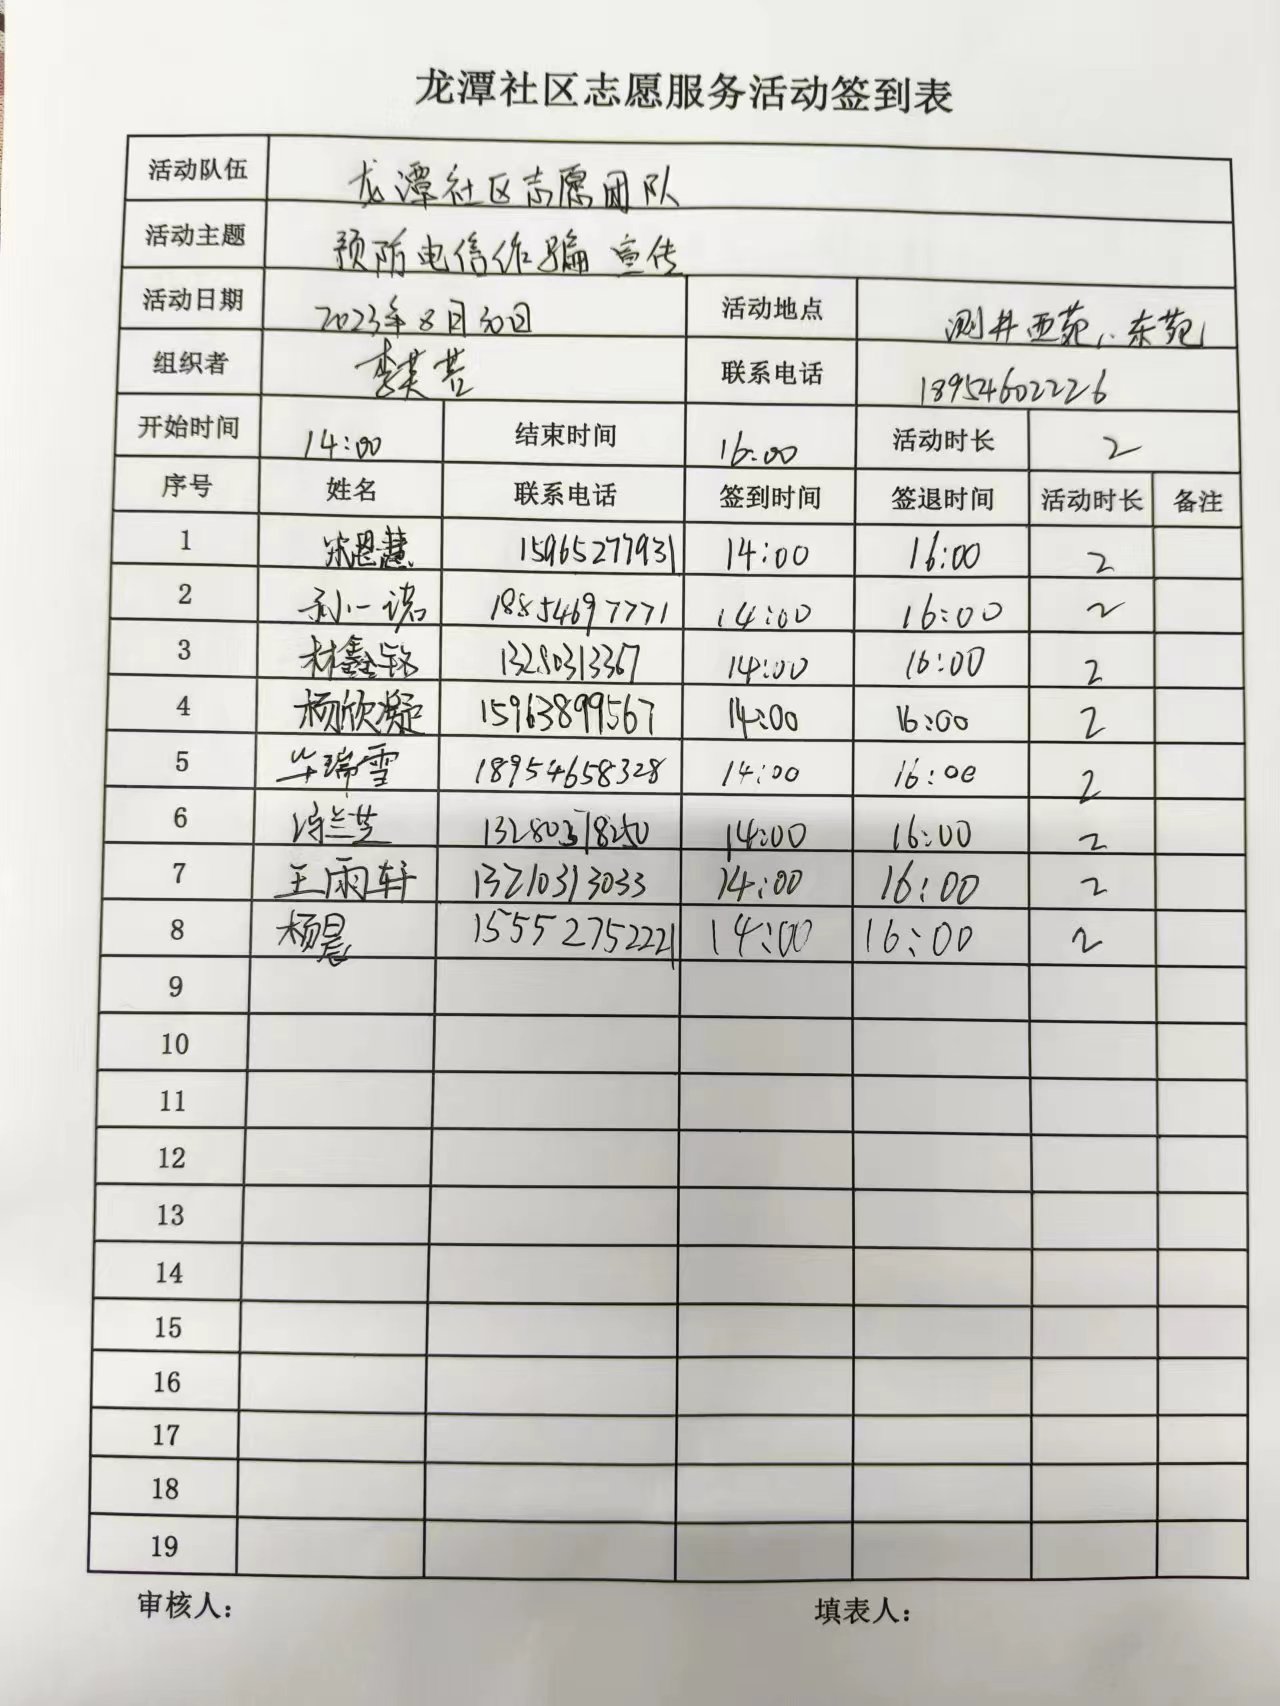 龙潭社区志愿服务活动签到表
活动队伍 龙潭社区志愿团队
活动主题 预防电信诈骗宣传
活动日期 2023年8月30日 活动地点 测井西苑、东苑
组织者 李英芸 联系电话 18954602226
开始时间 14:00 结束时间 16:00 活动时长 2
序号 姓名 联系电话 签到时间 签退时间 活动时长 备注
1 宋恩慧 15965277931 14:00 16:00 2
2 孙一诺 18854697771 14:00 16:00 2
3 林鑫铭 13280313367 14:00 16:00 2
4 杨欣凝 15963899567 14:00 16:00 2
5 毕瑞雪 18954658328 14:00 16:00 2
6 兰芝 14:00 16:00 2
7 王雨轩 13210313033 14:00 16:00 2
8 杨晨 15552752221 14:00 16:00 2
9
10
11
12
13
14
15
16
17
18
19
审核人： 填表人：